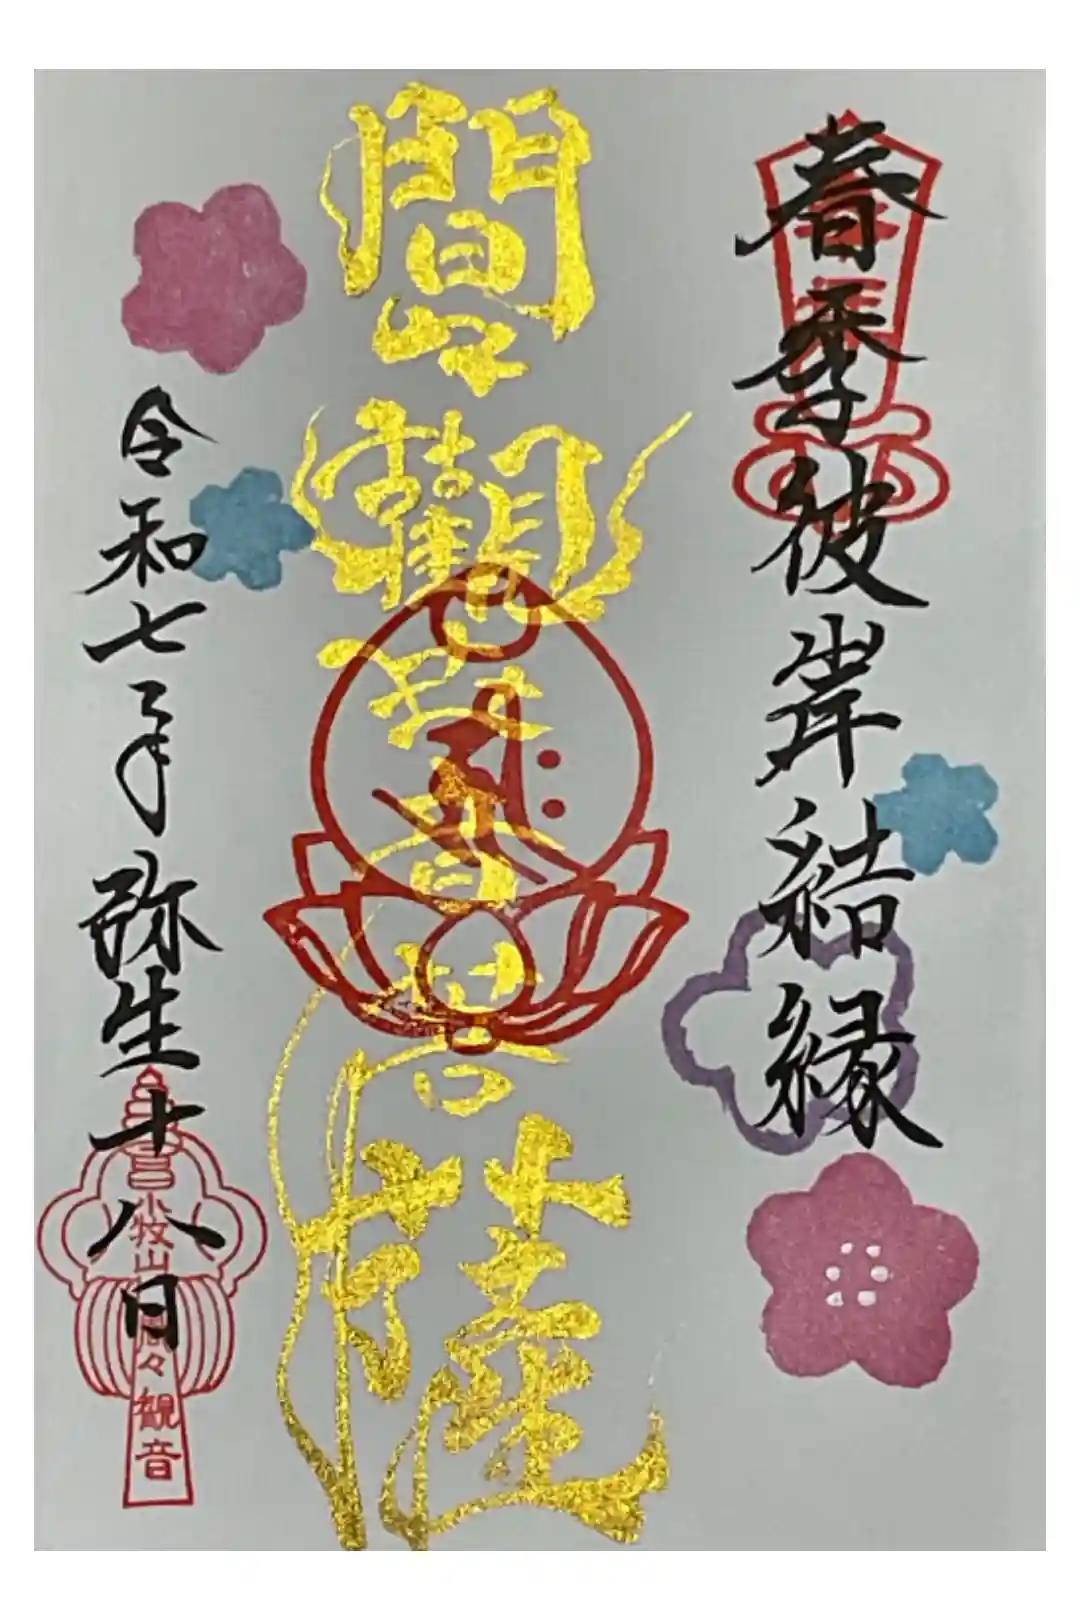 春季彼岸結縁
奉拝
間々観世音菩薩
令和七年弥生十八日
小牧山
間々観音